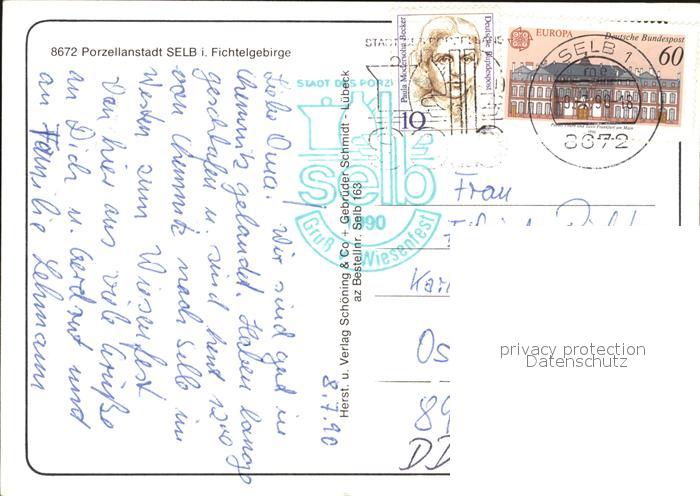 8672 Porzellanstadt SELB i. Fichtelgebirge
Liebe Oma. Wir sind gut in
Chemnitz gelandet. Haben lange
geschlafen u. sind heut 12⁰⁰
von Chemnitz nach Selb im
Westen zum Wiesenfest
Von hier aus viele Grüße
an Dich u. Gerdraut und
an Familie Lehmann
8.7.90
STADT DES PORZ
selb
1990
Gruß Wiesenfest
Herst. u. Verlag Schöning & Co + Gebrüder Schmidt - Lübeck
az Bestellnr. Selb 163
Paula Modersohn-Becker
Deutsche Bundespost
10
EUROPA
Deutsche Bundespost
60
SELB 1
8672
Frau
Os
89
DD
privacy protection
Datenschutz